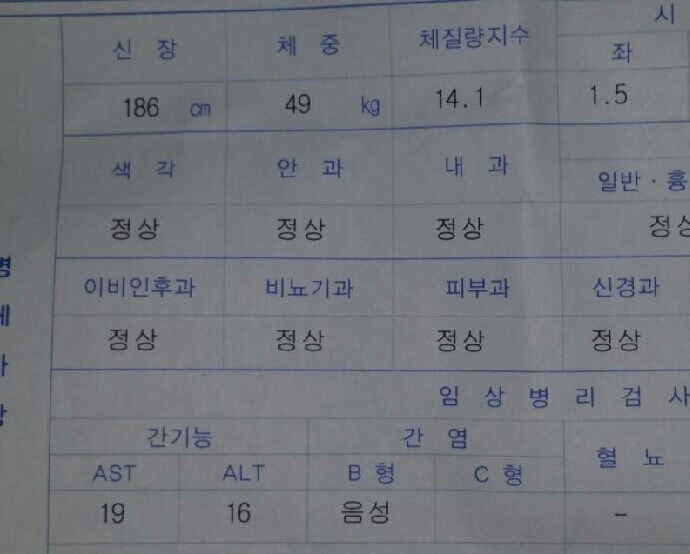 시
신 장 체 중 체질량지수 좌
186 cm 49 kg 14.1 1.5
색 각 안 과 내 과 일반·흉
정상 정상 정상 정상
이비인후과 비뇨기과 피부과 신경과
정상 정상 정상 정상
임 상 병 리 검 사
간기능 간 염 혈 뇨
AST ALT B 형 C 형
19 16 음성 -